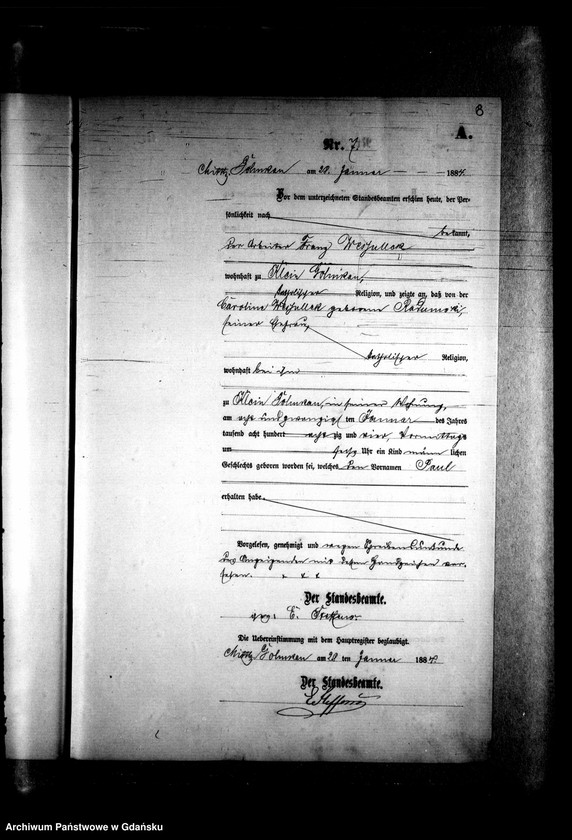 8
A.
Nr. 7
Gölmkau am 29. Januar 1884
Vor dem unterzeichneten Standesbeamten erschien heute, der Per-
sönlichkeit nach
bekannt,
der Arbeiter Franz
wohnhaft zu Klein Gölmkau,
katholischer Religion, und zeigte an, daß von der
Caroline geborene
seiner Ehefrau,
katholischer Religion,
wohnhaft bei ihm
zu Klein Gölmkau, in seiner Wohnung,
am acht und zwanzigsten Januar des Jahres
tausend acht hundert acht zig und vier, Vormittags
um sechs Uhr ein Kind männ lichen
Geschlechts geboren worden sei, welches den Vornamen Paul
erhalten habe.
Vorgelesen, genehmigt und wegen Schreibensunkunde
des Anzeigenden mit dessen Handzeichen ver-
sehen. + + +
Der Standesbeamte.
gez. E.
Die Uebereinstimmung mit dem Hauptregister beglaubigt.
Gölmkau am 29 ten Januar 1884
Der Standesbeamte.
Archiwum Państwowe w Gdańsku